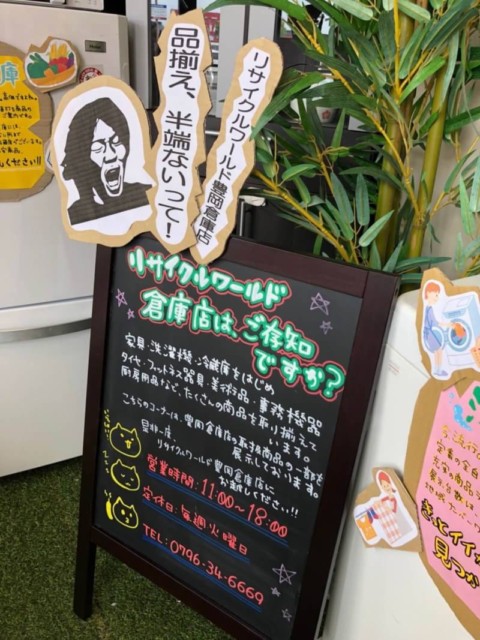 リサイクルワールド豊岡倉庫店
品揃え、半端ないって!
リサイクルワールド
倉庫店は、ご存知
ですか?
家具・洗濯機・冷蔵庫をはじめ
タイヤ・フィットネス器具・美術品・事務機器
厨房用品など、たくさんの商品を取り揃えて
います。
こちらのコーナーは、豊岡倉庫店の取扱商品の一部を
展示しております。
是非一度、
リサイクルワールド豊岡倉庫店に
お越しください!!
営業時間:11:00~18:00
定休日:毎週火曜日
TEL:0796-34-6669